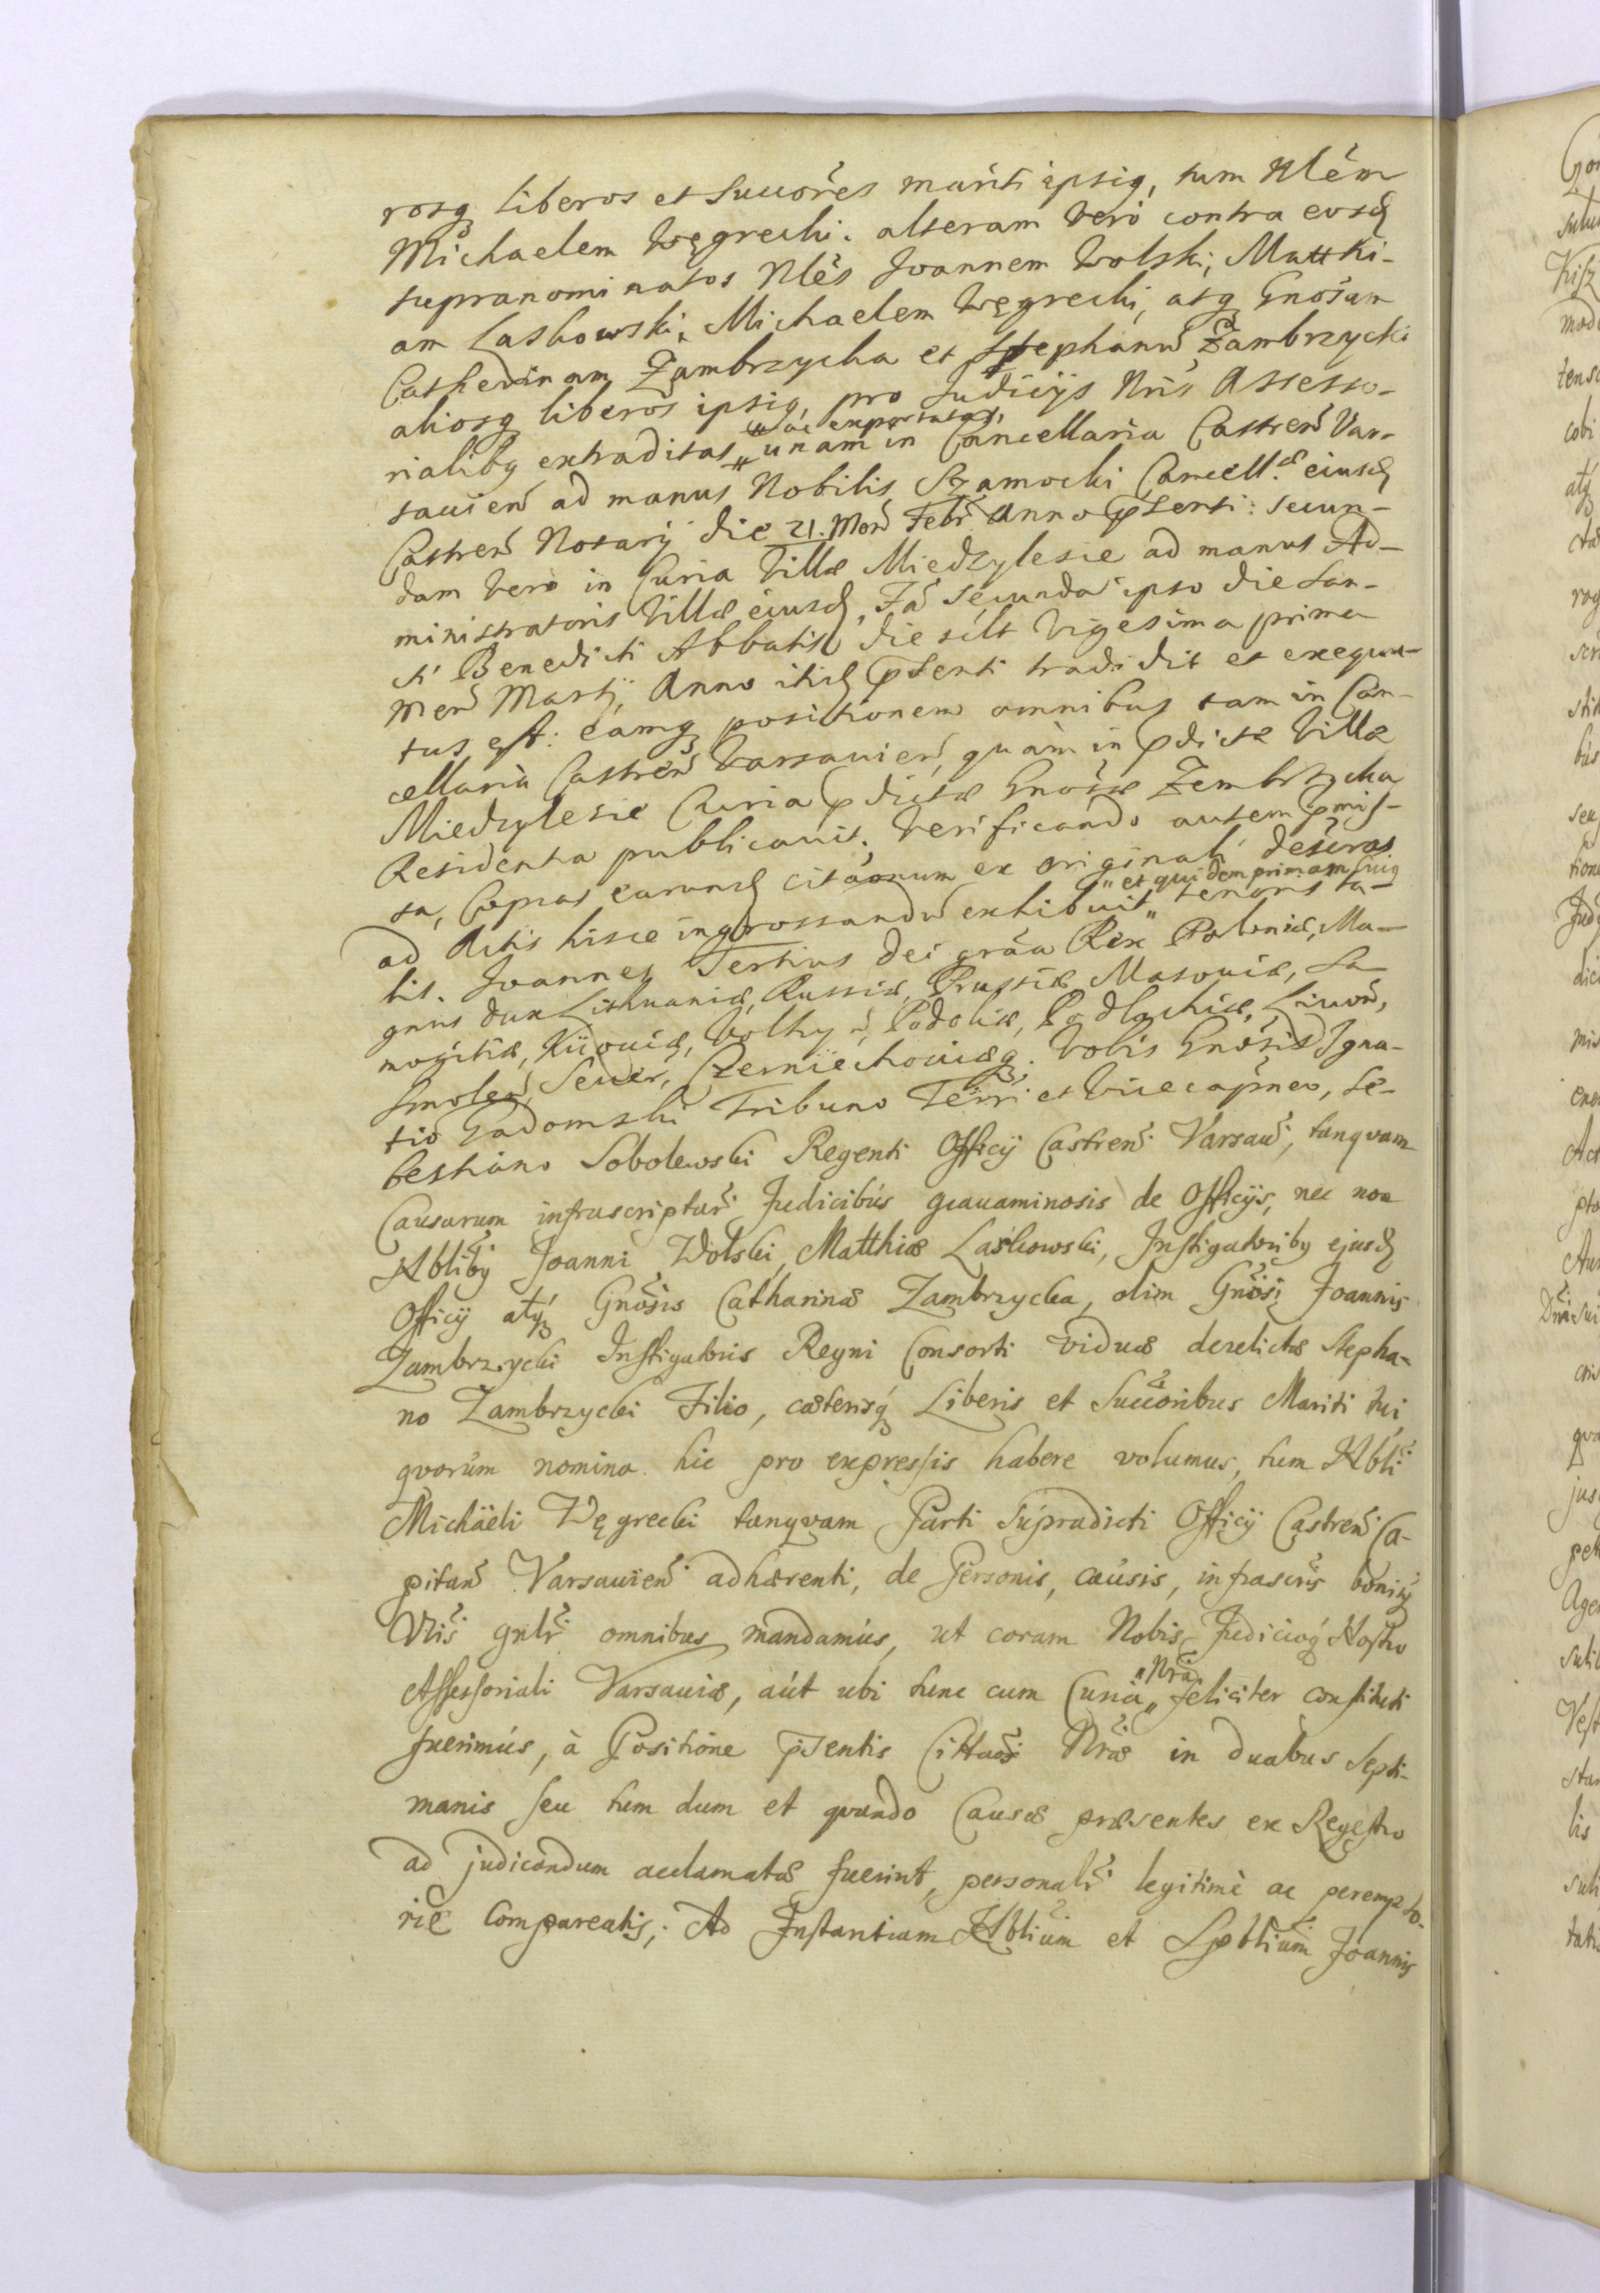 rosq liberos et Succores mariti ipsiq, tum Nlem
Michaelem Węgrecki. alteram vero contra eosd
supranominatos Nles Joannem Wolski, Matthi-
am Laskowski, Michaelem Węgrecki, atq Gnosam
Catherinam Zambrzycka et Stephanu Zambrzycki
aliosq liberos ipsiq, pro Judicijs Nris Assesso-
rialibq extraditas „ac exportatas„ unam in Cancellaria Castren Var-
savien ad manus Nobilis Szamocki Cancell. eiusd
Castren Notarij die 21. Men Febr Anno psenti: secun-
dam vero in Curia Villæ Miedzylesie ad manus Ad-
ministratoris Villæ eiusd, Fa Secunda ipso die San-
cti Benedicti Abbatis die silt Vigesima prima
Men Martij, Anno itid psenti tradidit et exequu-
tus est: eamq positionem omnibus tam in Can-
cellaria Castren Varsavien, quàm in pdictæ Villæ
Miedzylesie Curia pdictæ Gnosæ Zembrzycka
Residentia publicavit. Verificando autem pmis-
sa, Copias earund citaonum ex originali desceas
ad Actis hisce ingrossandu exhibuit „et quidem primam huiq„ tenoris ta-
lis. Joannes Tertius Dei graa Rex Poloniæ, Ma-
gnus dux Lithuaniæ, Russiæ, Prussiæ Masoviæ, Sa-
mogitiæ, Kijoviæ, Volhyn, Podoliæ, Podlachiæ, Livon,
Smolen, Sever, Czerniechoviæq. Vobis Gnosis Igna-
tio Gadomski Tribuno Terri et Vicecapneo, Se-
bestiano Sobolewski Regenti Officij Castren Varsav, tanqvam
Causarum infrascriptar Judicibus gravaminosis de Officijs, nec non
Nblibq Joanni Wolski, Matthiæ Laskowski, Instigatoribq ejusd
Officij atq Gnosis Catharinæ Zambrzycka, olim Gnosi Joannis
Zambrzycki Instigatoris Regni Consorti viduæ derelictæ Stepha-
no Zambrzycki Filio, cæterisq Liberis et Succoribus Mariti tui
qvorum nomina hic pro expressis habere volumus, tum Nbli
Michaeli Węgrecki tanqvam Parti supradicti Officij Castren Ca-
pitan Varsavien adhærenti, de Personis, causis, infrascris bonisq
Vris gnlr omnibus mandamus, ut coram Nobis Judicioq Nostro
Assessoriali Varsaviæ, aut ubi tunc cum Curia „Nra„ feliciter constituti
fuerimus, à Positione psentis Cittaois Nræ in duabus Septi-
manis seu tum dum et qvando Causæ præsentes ex Regestro
ad judicandum acclamatæ fuerint, personalr legitimè ac perempto-
riè Compareatis; Ad Instantiam Nblium et Spblium Joannis